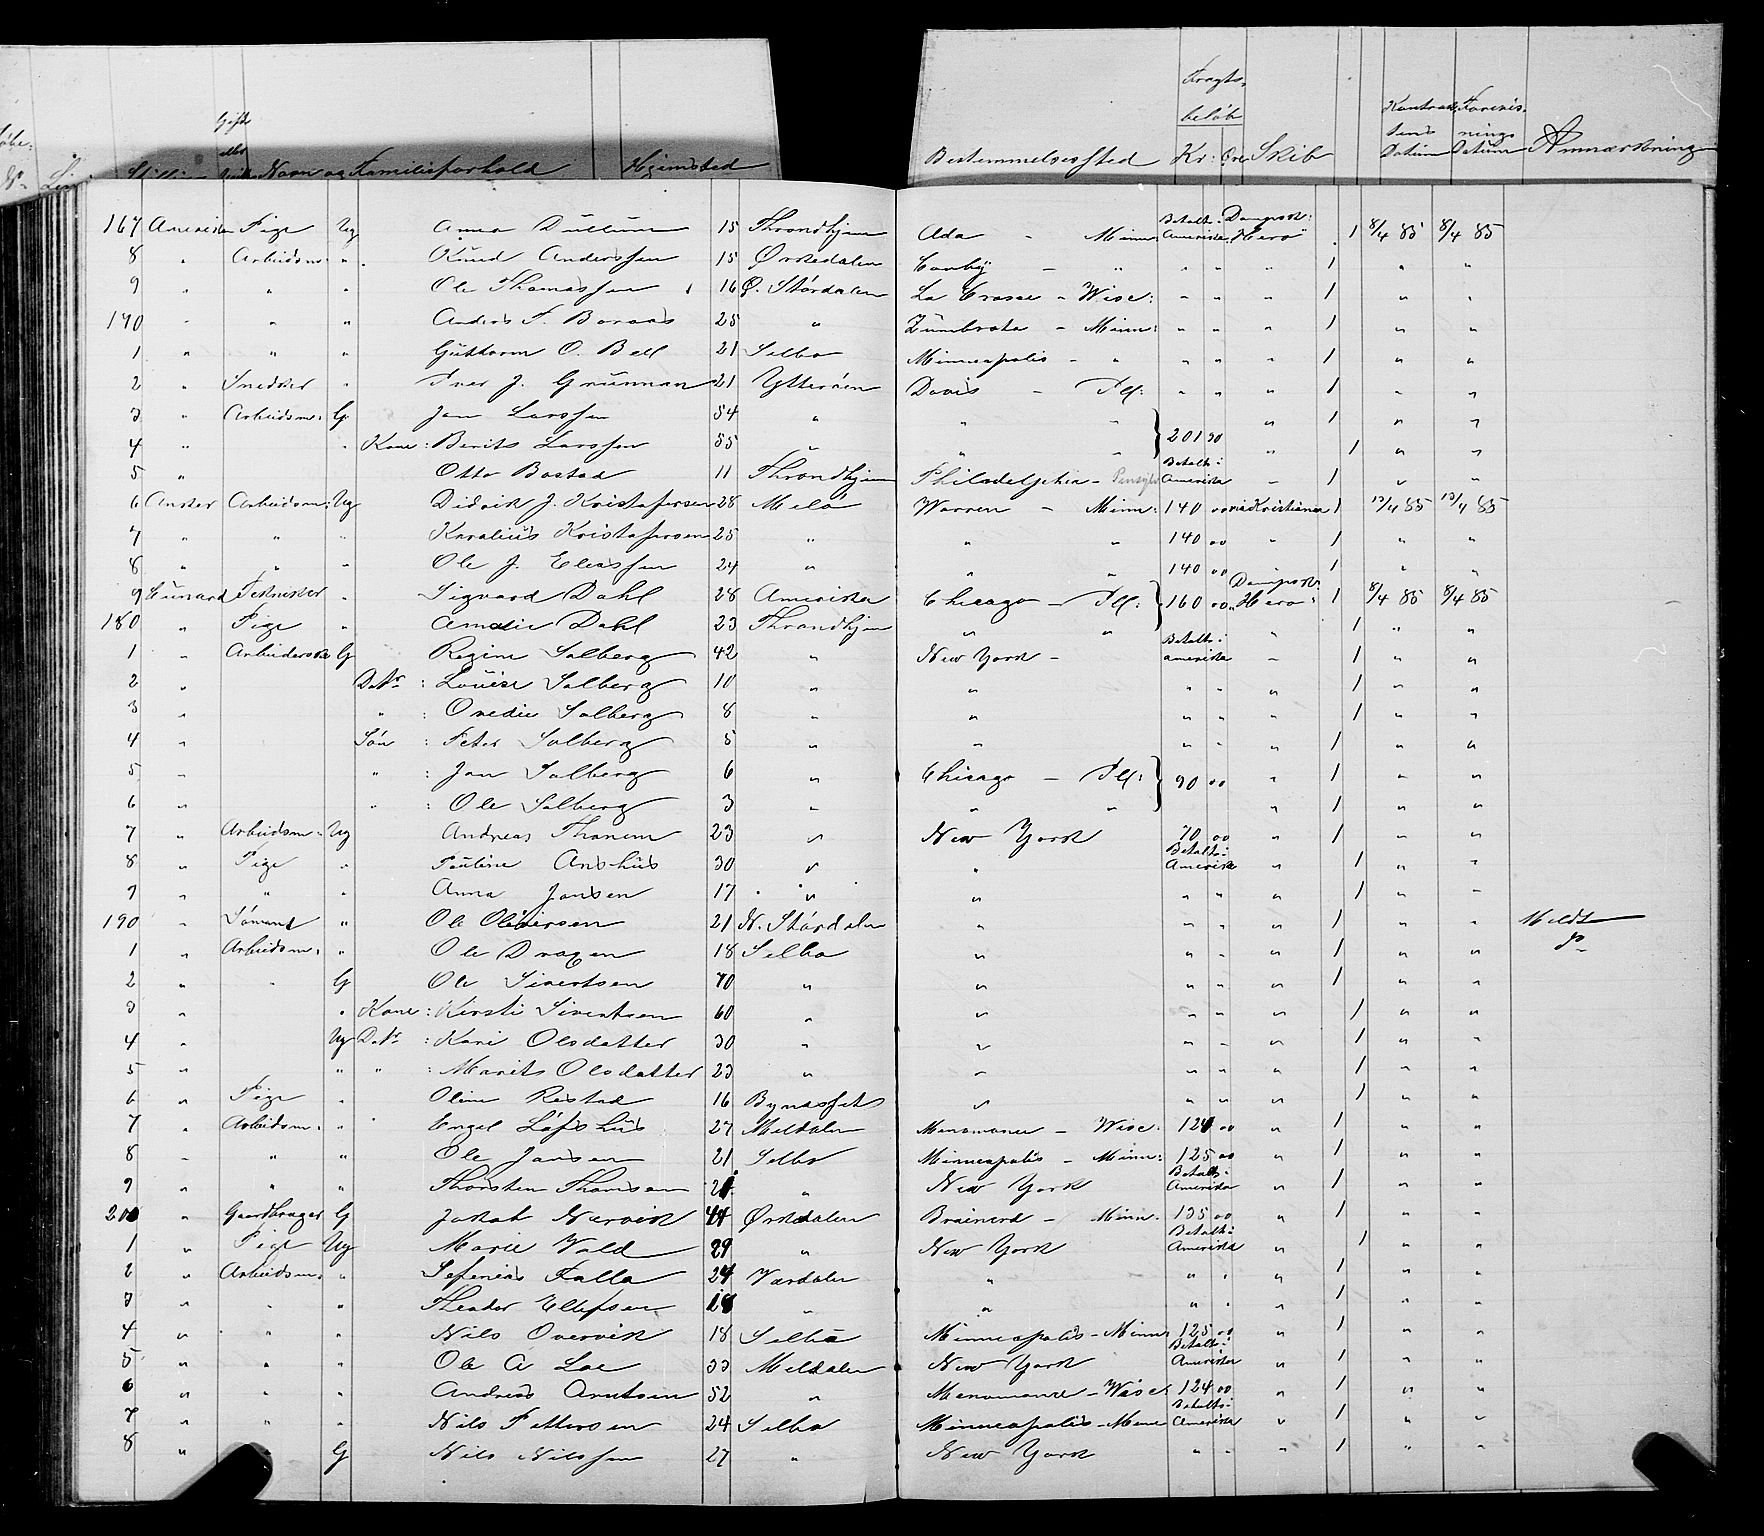 Gift
eller
Navn og Familieforhold Hjemsted
Bestemmelsessted Fragtbeløb Kr: Øre Skib Datum Datum Anmærkning
167 America Pige Ug Anna Dullum 15 Throndhjem Ada - Minn: Betalt i Amerika Dampsk: "Hero" 1 8/4 85 8/4 85
8 " Arbeidsm: " Knud Anderssen 15 Ørkedalen Canby - " " " " 1 " "
9 " " " Ole Thomassen 16 Ø. Stördalen La Crosse - Wisc: " " " 1 " "
170 " " " Anders T. Boraas 25 " Zumbrota - Minn: " " " 1 " "
1 " " " Guttorm O. Bell 21 Selbo Minneapolis - " " " " 1 " "
2 " Snedker " Iver J. Grunnan 21 Ytterøen Davis - Ill: " " " 1 " "
3 " Arbeidsm: G Jon Larssen 54 " " " 1 " "
4 " " Kone: Berits Larssen 55 " " " } 201 90 " 1 " "
5 " Otto Bostad 11 Throndhjem Philadelphia - Pensylv Betalt i Amerika " 1 " "
6 Anker Arbeidsm: Ug Didrik J. Kristofersen 28 Melö Warren - Minn: 140 00 via Kristiania 1 13/4 85 13/4 85
7 " " " Karolius Kristofersen 25 " " " 140 00 " 1 " "
8 " " " Ole J. Eliassen 24 " " " 140 00 1 " "
9 Cunard " Sigvard Dahl 28 Amerika Chicago - Ill: } 160 00 Dampsk: "Hero" 1 8/4 85 8/4 85
180 " Pige " Amalie Dahl 23 Throndhjem " " " 1 " "
1 " Arbeiderske G Regine Solberg 42 " New York - Betalt i amerika " 1 " "
2 " Dttr: Louise Solberg 10 " " " " " 1 " "
3 " " : Ovedie Solberg 8 " " " " " 1 " "
4 " Søn : Peter Solberg 5 " " " " " 1 " "
5 " " : Jon Solberg 6 " Chicago - Ill: } 90 00 " 1 " "
6 " " : Ole Solberg 3 " " " " 1 " "
7 " Arbeidsm: Ug Andreas Thanem 23 " New York 70 00 " 1 " "
8 " Pige " Pauline Anshus 30 " " Betalt i Amerika " 1 " "
9 " " " Anna Jonsen 17 " " " " " " 1 " "
190 " Sömand " Ole Olaversen 21 N. Stördalen " " " " 1 " " Meldt
1 " Arbeidsm: " Ole Dragen 18 Selbo " " " " 1 " "
2 " " G Ole Sivertsen 70 " " " " " 1 " "
3 " " Kone: Kirsti Sivertsen 60 " " " " " 1 " "
4 " Ug Dttr: Kari Olsdatter 30 " " " " " 1 " "
5 " " " : Marits Olsdatter 23 " " " " " 1 " "
6 " Pige " Oline Restad 16 Bynæsset " " " " 1 " "
7 " Arbeidsm: " Engel Löfshus 27 Meldalen Menomonee - Wisc: 124 00 " 1 " "
8 " " " Ole Jonsen 21 Selbo Minneapolis - Minn: 125 00 " 1 " "
9 " " " Thorsten Thomsen 21 " New York Betalt i Amerika " 1 " "
200 " Gaardbruger G Jakob Narvik 44 Ørkedalen Brainerd - Minn: 135 00 " 1 " "
1 " Pige Ug Marie Vold 29 " New York Betalt i Amerika " 1 " "
2 " Arbeidsm: " Sefenias Falla 24 Værdalen " " " " 1 " "
3 " " " Theodor Ellefsen 18 " " " " " 1 " "
4 " " " Nils Overvik 18 Selbu Minneapolis - Minn 125 00 " 1 " "
5 " " " Ole A Loe 33 Meldalen New York Betalt i Amerika " 1 " "
6 " " " Andreas Arntsen 52 " Menomonee - Wisc 124 00 " 1 " "
7 " " " Nils Pettersen 24 Selbo Minneapolis - Minn Betalt i Amerika " 1 " "
8 " G Nils Nilssen 27 " New York " " " 1 " "